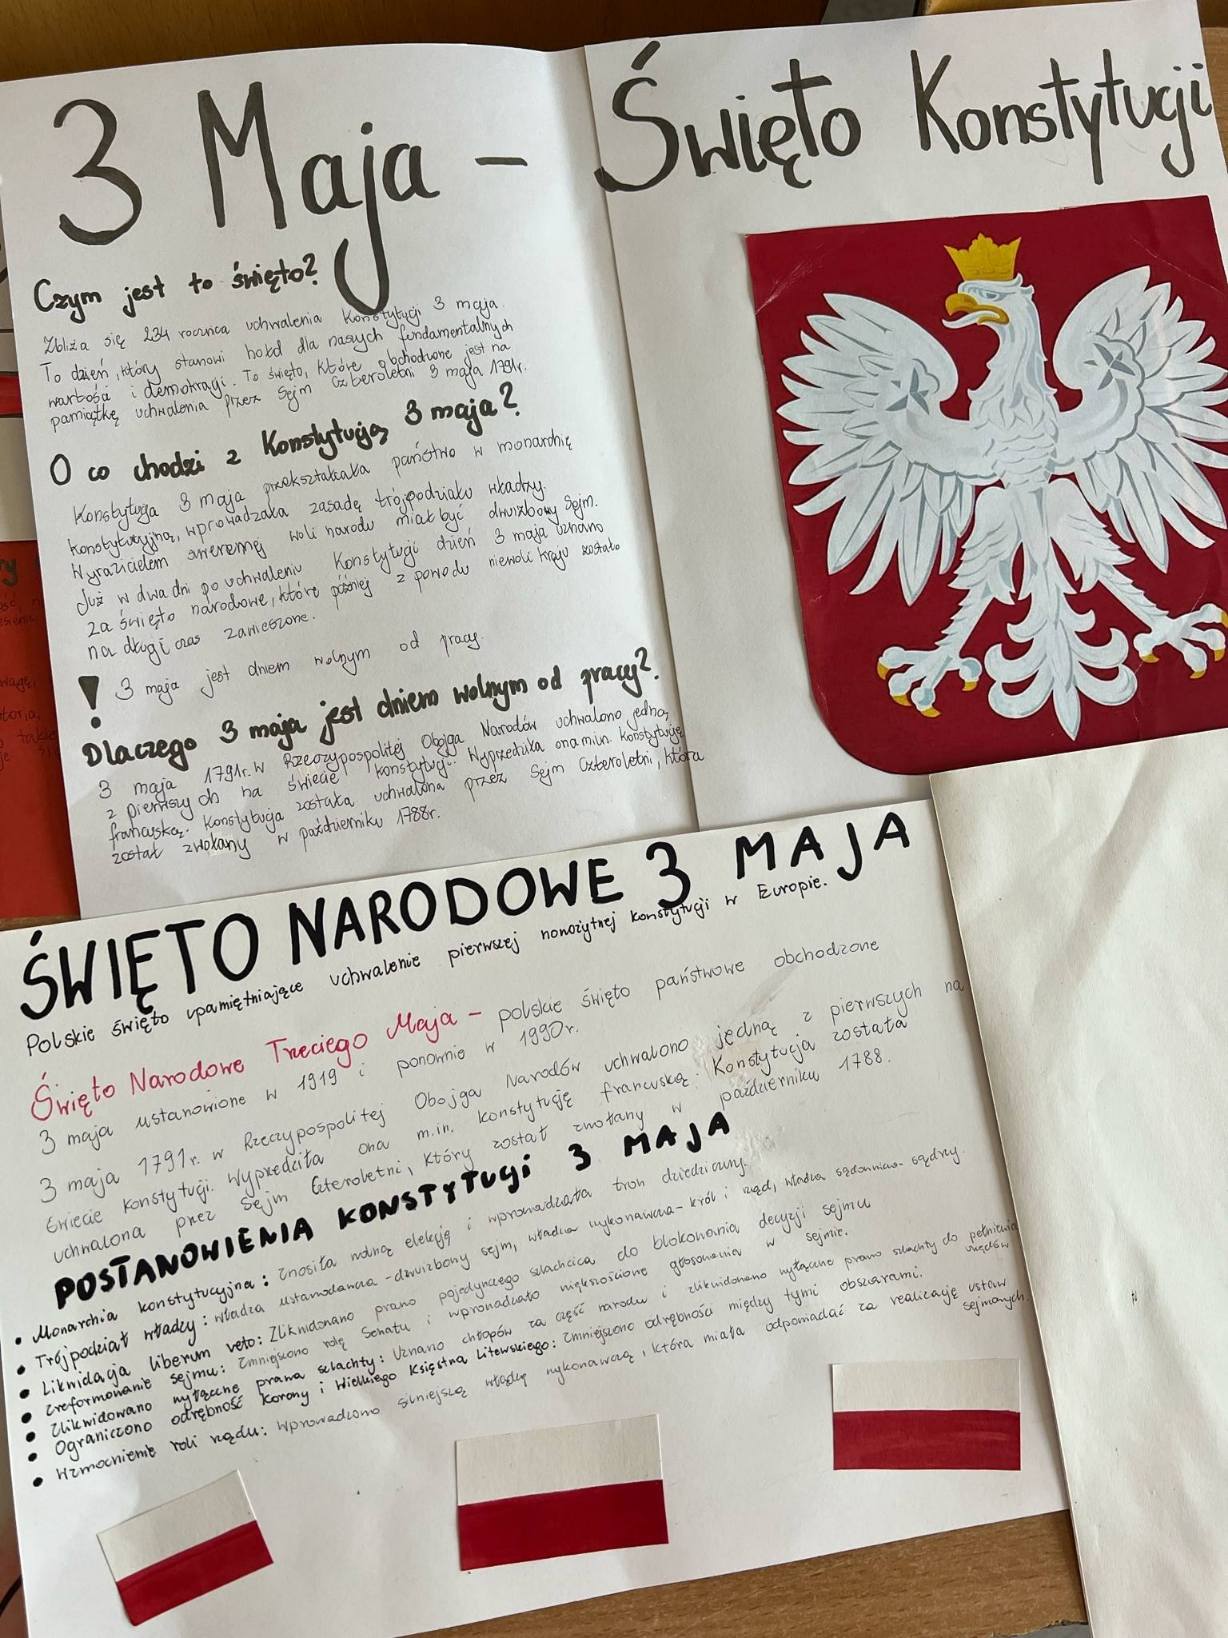 3 Maja - Święto Konstytucji
Czym jest to święto?
Zbliża się 234 rocznica uchwalenia Konstytucji 3 maja.
To dzień, który stanowi hołd dla naszych fundamentalnych
wartości i demokracji. To święto, które obchodzone jest na
pamiątkę uchwalenia przez Sejm Czteroletni 3 maja 1791r.
O co chodzi z Konstytucją 3 maja?
Konstytucja 3 maja przekształcała państwo w monarchię
konstytucyjną, wprowadzała zasadę trójpodziału władzy.
Wyrazicielem suwerennej woli narodu miał być dwuizbowy Sejm.
Już w dwa dni po uchwaleniu Konstytucji dzień 3 maja uznano
za święto narodowe, które później z powodu niewoli kraju zostało
na długi czas zawieszone.
! 3 maja jest dniem wolnym od pracy.
Dlaczego 3 maja jest dniem wolnym od pracy?
3 maja 1791r. w Rzeczypospolitej Obojga Narodów uchwalono jedną
z pierwszych na świecie konstytucji. Wyprzedziła ona min. konstytucję
francuską. Konstytucja została uchwalona przez Sejm Czteroletni, która
został zwołany w październiku 1788r.
ŚWIĘTO NARODOWE 3 MAJA
Polskie święto upamiętniające uchwalenie pierwszej nowożytnej konstytucji w Europie.
Święto Narodowe Trzeciego Maja - polskie święto państwowe obchodzone
3 maja ustanowione w 1919 i ponownie w 1990r.
3 maja 1791r. w Rzeczypospolitej Obojga Narodów uchwalono jedną z pierwszych na
świecie konstytucji. Wyprzedziła ona m.in. konstytucję francuską. Konstytucja została
uchwalona przez Sejm Czteroletni, który został zwołany w październiku 1788.
POSTANOWIENIA KONSTYTUCJI 3 MAJA
• Monarchia konstytucyjna: Znosiła wolną elekcję i wprowadzała tron dziedziczny.
• Trójpodział władzy: władza ustawodawcza - dwuizbowy sejm, władza wykonawcza - król i rząd, władza sądownicza - sędzy.
• Likwidacja liberum veto: Zlikwidowano prawo pojedynczego szlachcica do blokowania decyzji sejmu
• Zreformowanie sejmu: Zmniejszono rolę Senatu i wprowadzało większościowe głosowania w sejmie.
• Zlikwidowano wyłączne prawa szlachty: Uznano chłopów za część narodu i zlikwidowano wyłączne prawo szlachty do pełnienia urzędów
• Ograniczono odrębność Korony i Wielkiego Księstwa Litewskiego: Zmniejszono odrębności między tymi obszarami.
• Wzmocnienie roli rządu: Wprowadzono silniejszą władzę wykonawczą, która miała odpowiadać za realizację ustaw sejmowych.